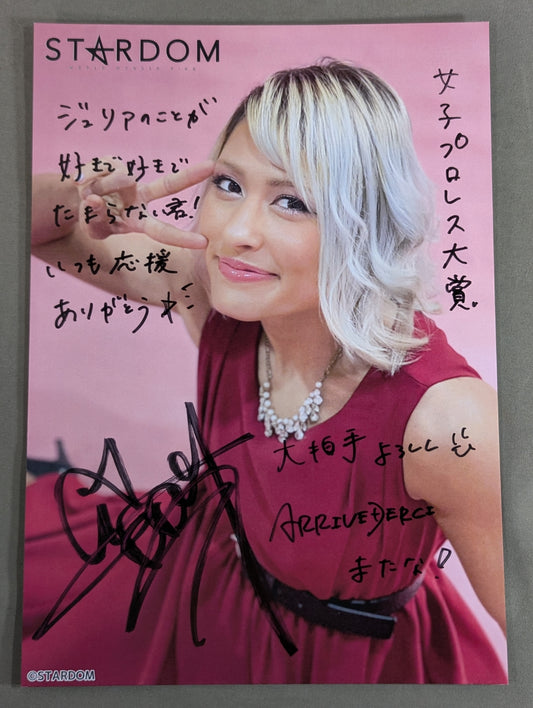 STARDOM
ジュリアのことが
好きで好きで
たまらない君!
いつも応援
ありがとうネ!
女子プロレス大賞
大拍手よろしく
ARRIVEDERCI
またな!
©STARDOM